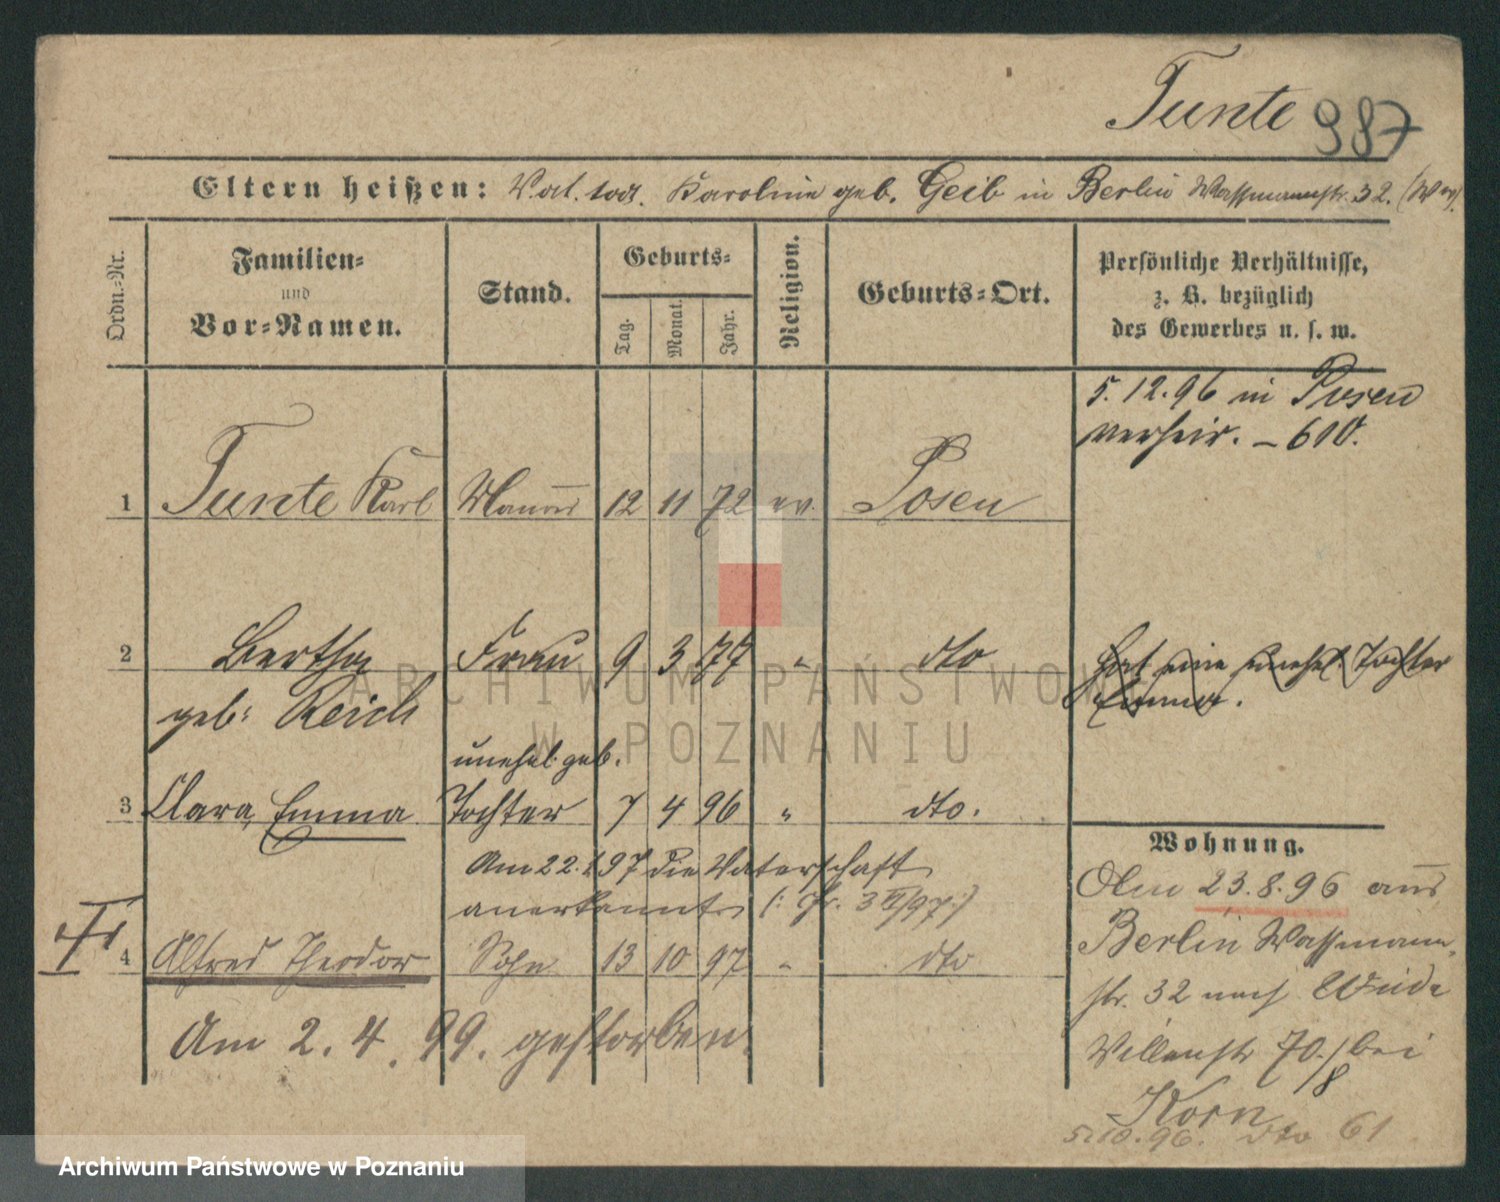 Tunte 987
Eltern heißen: Vat. tot. Karoline geb. Geib in Berlin Wassmannstr. 32. (Ww).
Ordn.-Nr.
Familien-
und
Vor-Namen.
Stand.
Geburts-
Tag.
Monat.
Jahr.
Religion.
Geburts-Ort.
Persönliche Verhältnisse,
z. B. bezüglich
des Gewerbes u. s. w.
5. 12. 96 in Posen
verheir. – 610.
1 Tunte Karl 12 11 72 ev. Posen
2 Bertha Frau 9 3 77 " dto
geb: Reich
Hat eine unehel. Tochter
Emma.
unehel. geb.
3 Clara, Emma Tochter 7 4 96 " dto.
Am 22. 1 97 die Vaterschaft
anerkannt
4 Alfred Theodor Sohn 13 10 97 " dto
Am 2. 4. 99. gestorben.
Wohnung.
23.8.96 aus
Berlin Wassmann-
str. 32 nach
70. / bei
8
Korn
5.10.96. dto 61
ARCHIWUM PAŃSTWOWE
W POZNANIU
Archiwum Państwowe w Poznaniu